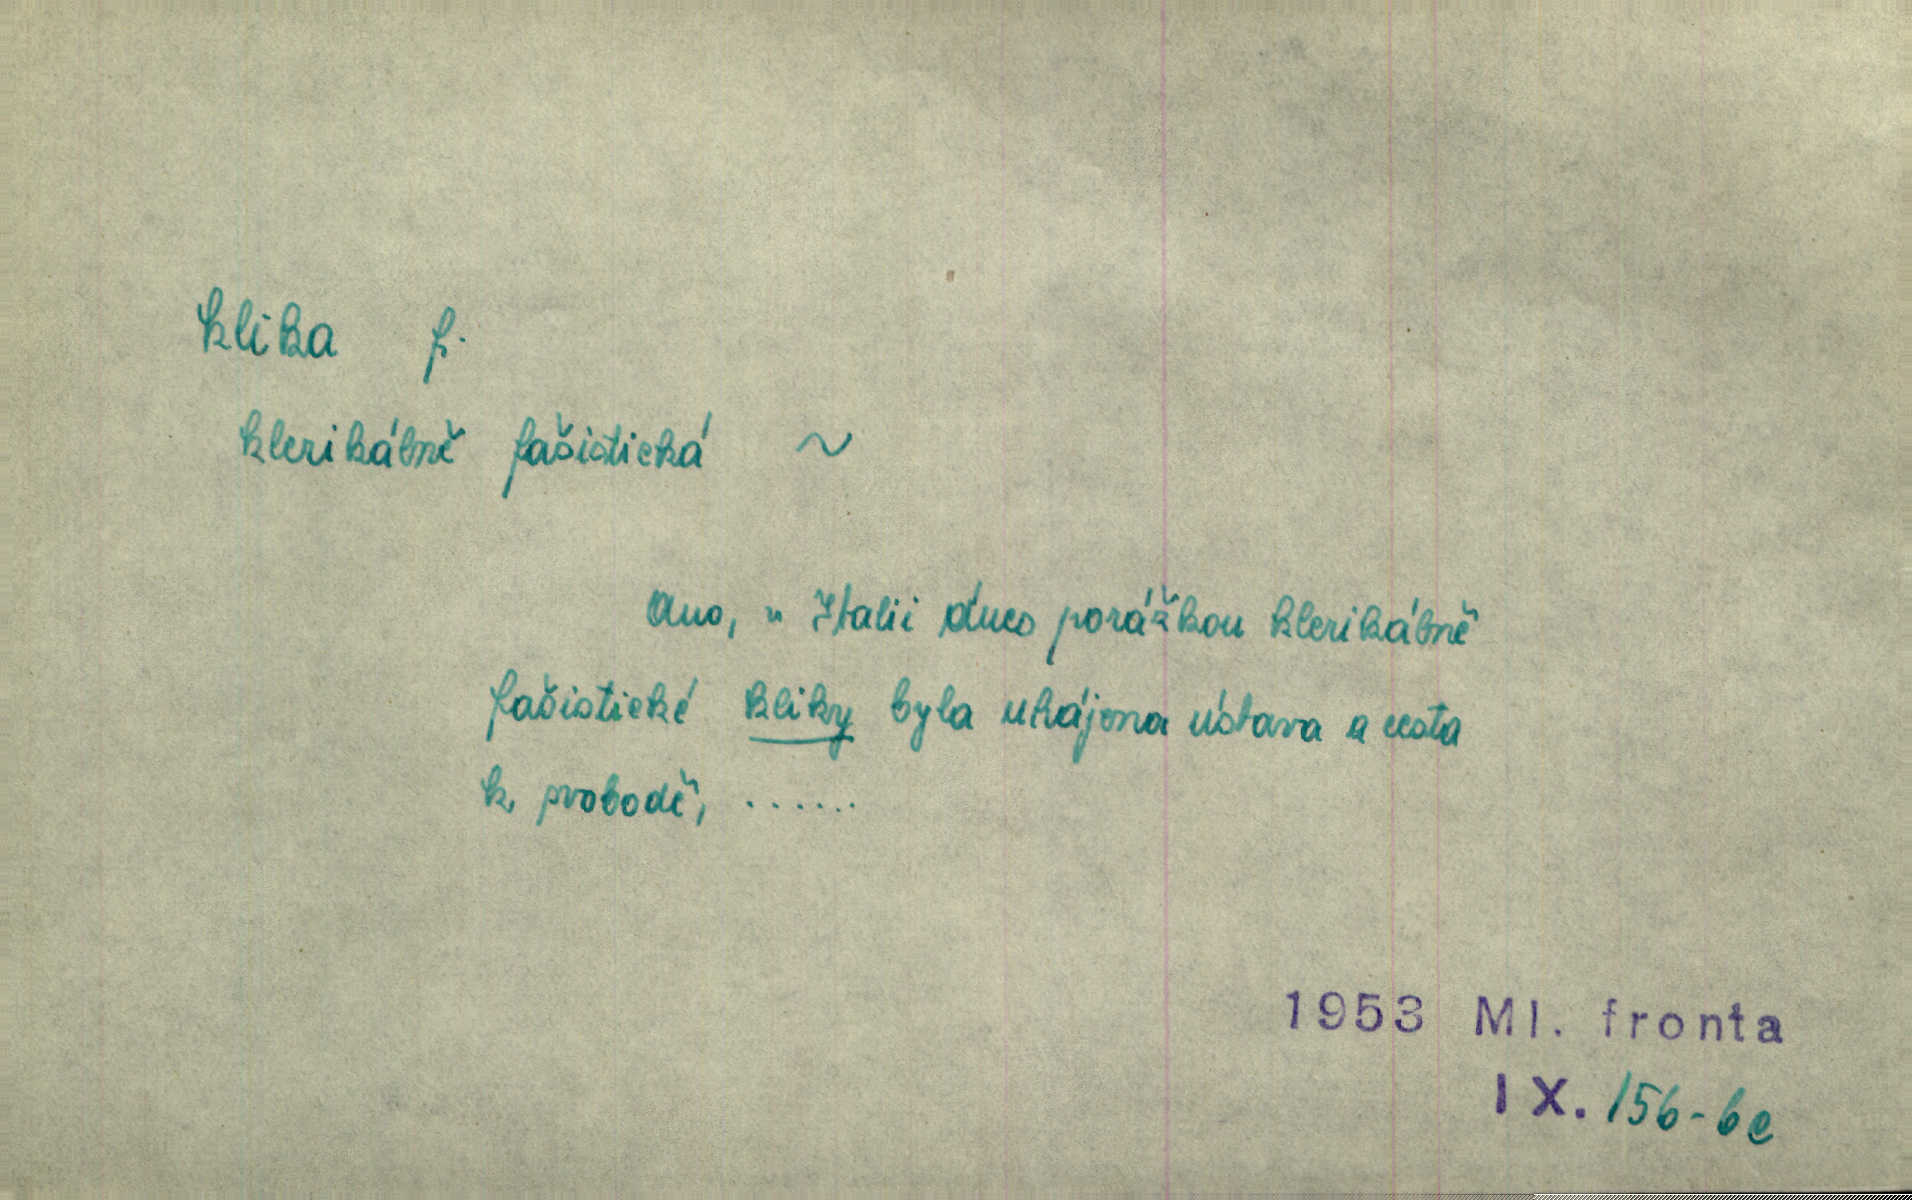 klika f.
klerikálně fašistická ~
Ano, v Italii dnes porážkou klerikálně
fašistické kliky byla uhájena ústava a cesta
k svobodě, ......
1953 Ml. fronta
IX. 156-6c